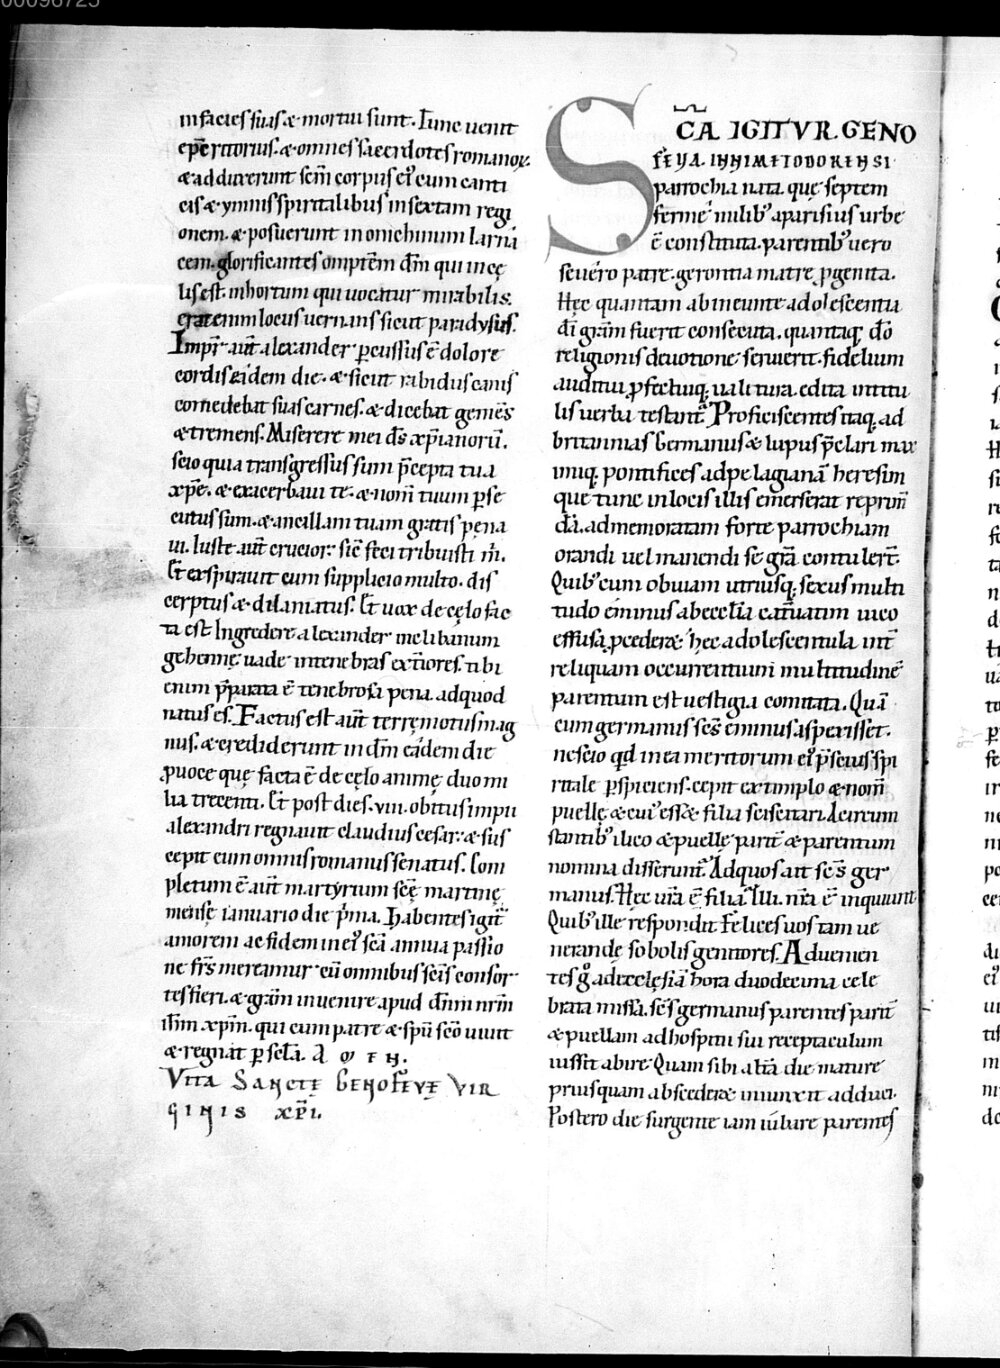 00098725
in facies suas. & mortui sunt. Tunc uenit
ep̄s ritorius. & omnes sacerdotes romanoꝝ.
& adduxerunt sc̄m corpus eiꝰ cum canti
cis & ymnis spiritalibus in sextam regi
onem. & posuerunt in omichinum
cem. glorificantes omp̄tem dm̄ qui in cę
lis est. in hortum qui uocatur mirabilis.
erat enim locus uernans sicut paradysus.
Impr̄ aut̄ alexander p̄cussus ē dolore
cordis eidem die. & sicut rabidus canis
comedebat suas carnes. & dicebat gemēs
& tremens. Miserere mei ds̄ xp̄ianorū.
scio quia transgressus sum p̄cepta tua
xp̄e. & exacerbaui te. & nom̄ tuum p̄se
cutus sum. & ancillam tuam gratis pena
ui. Iuste aut̄ crucior: sic̄ feci tribuisti m̄.
Et exspirauit cum supplicio multo. dis
cerptus & dilaniatus. Et uox de cęlo fac
ta est Ingredere alexander in clibanum
gehennę uade in tenebras ext̄iores. tibi
enim p̄parata ē tenebrosa pena. ad quod
natus es. Factus est aut̄ terręmotus mag
nus. & crediderunt in dm̄ eadem die
p uoce quę facta ē de cęlo animę duo mi
lia trecenti. Et post dies. viii. obitus impii
alexandri regnauit claudius cesar: & sus
cepit eum omnis romanus senatus. Com
pletum ē aut̄ martyrium sc̄ę martinę
mense ianuario die p̄ma. Habentes igit̄
amorem ac fidem in eiꝰ sc̄a annua passio
ne frs̄ mereamur cū omnibus sc̄is consor
tes fieri. & gr̄am inuenire apud dn̄m nr̄m
ih̄m xp̄m. qui cum patre & sp̄u sc̄o uiuit
& regnat p̄ sc̄la. A M E N.
VITA SANCTĘ GENOFEVĘ VIR
GINIS XP̄I.
SC̄A IGITVR. GENO
FEVA. IN NIMETODORENSI
parrochia nata. quę septem
ferme milibꝰ a parisius urbe
ē constituta. parentibꝰ uero
seuero patre. gerontia matre p̄genita.
Hęc quantam ab ineunte adolescentia
di̅ gr̄am fuerit consecuta. quantaq; do̅
religionis deuotione seruierit. fidelium
auditui p̄fectuiq; ualitura. edita intitu
lis uerba testant̄. Proficiscentes itaq; ad
britannias Germanus & lupus p̄clari max
imiq; pontifices ad pelagianā heresim
que tunc in locis illis emerserat reprimē
dā. ad memoratam forte parrochiam
orandi uel manendi se grā contuler̄t.
Quibꝰ cum obuiam utriusq; sexus multi
tudo eminus ab ecclia cat̄uatim uico
effusa p̄cederet: hęc adolescentula int̄
reliquam occurrentium multitudinē
parentum est uestigia comitata. Quā
cum germanus sc̄s eminus asperisset.
nescio qd̄ in ea meritorum eiꝰ p̄scius spi
ritale p̄spiciens. cepit extimplo & nom̄
puellę & cuiꝰ esset filia sciscitari. At circum
stantibꝰ ilico & puellę parit̄ & parentum
nomina disserunt̄. Ad quos ait sc̄s ger
manus. Hęc ur̄a ē filia? Illi. nr̄a ē inquiunt
Quibꝰ ille respondit Felices uos tam ue
nerandę sobolis genitores. Aduenien
tes gͦ ad ecclęsiā hora duodecima cele
brata missa. sc̄s germanus parentes parit̄
& puellam ad hospitii sui receptaculum
iussit abire. Quam sibi alt̄a die mature
priusquam abscederet iniunxit adduci.
Postero die surgente iam iubare parentes